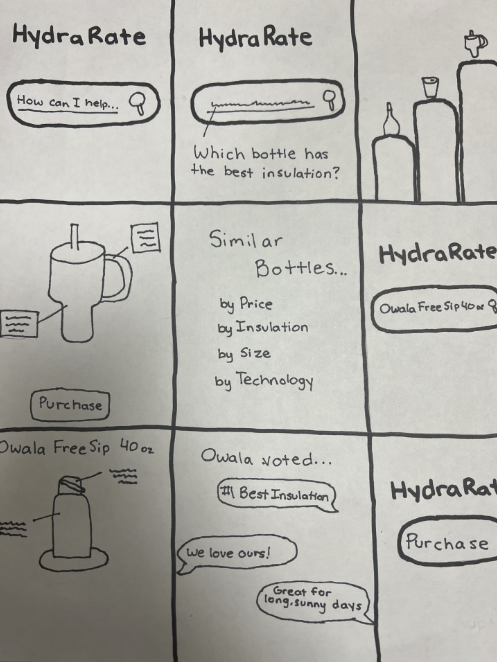 HydraRate
How can I help...
HydraRate
Which bottle has
the best insulation?
Purchase
Similar
Bottles...
by Price
by Insulation
by Size
by Technology
HydraRate
Owala FreeSip 40 oz
Owala FreeSip 40 oz
Owala voted...
#1 Best Insulation
We love ours!
Great for
long, sunny days
HydraRat
Purchase